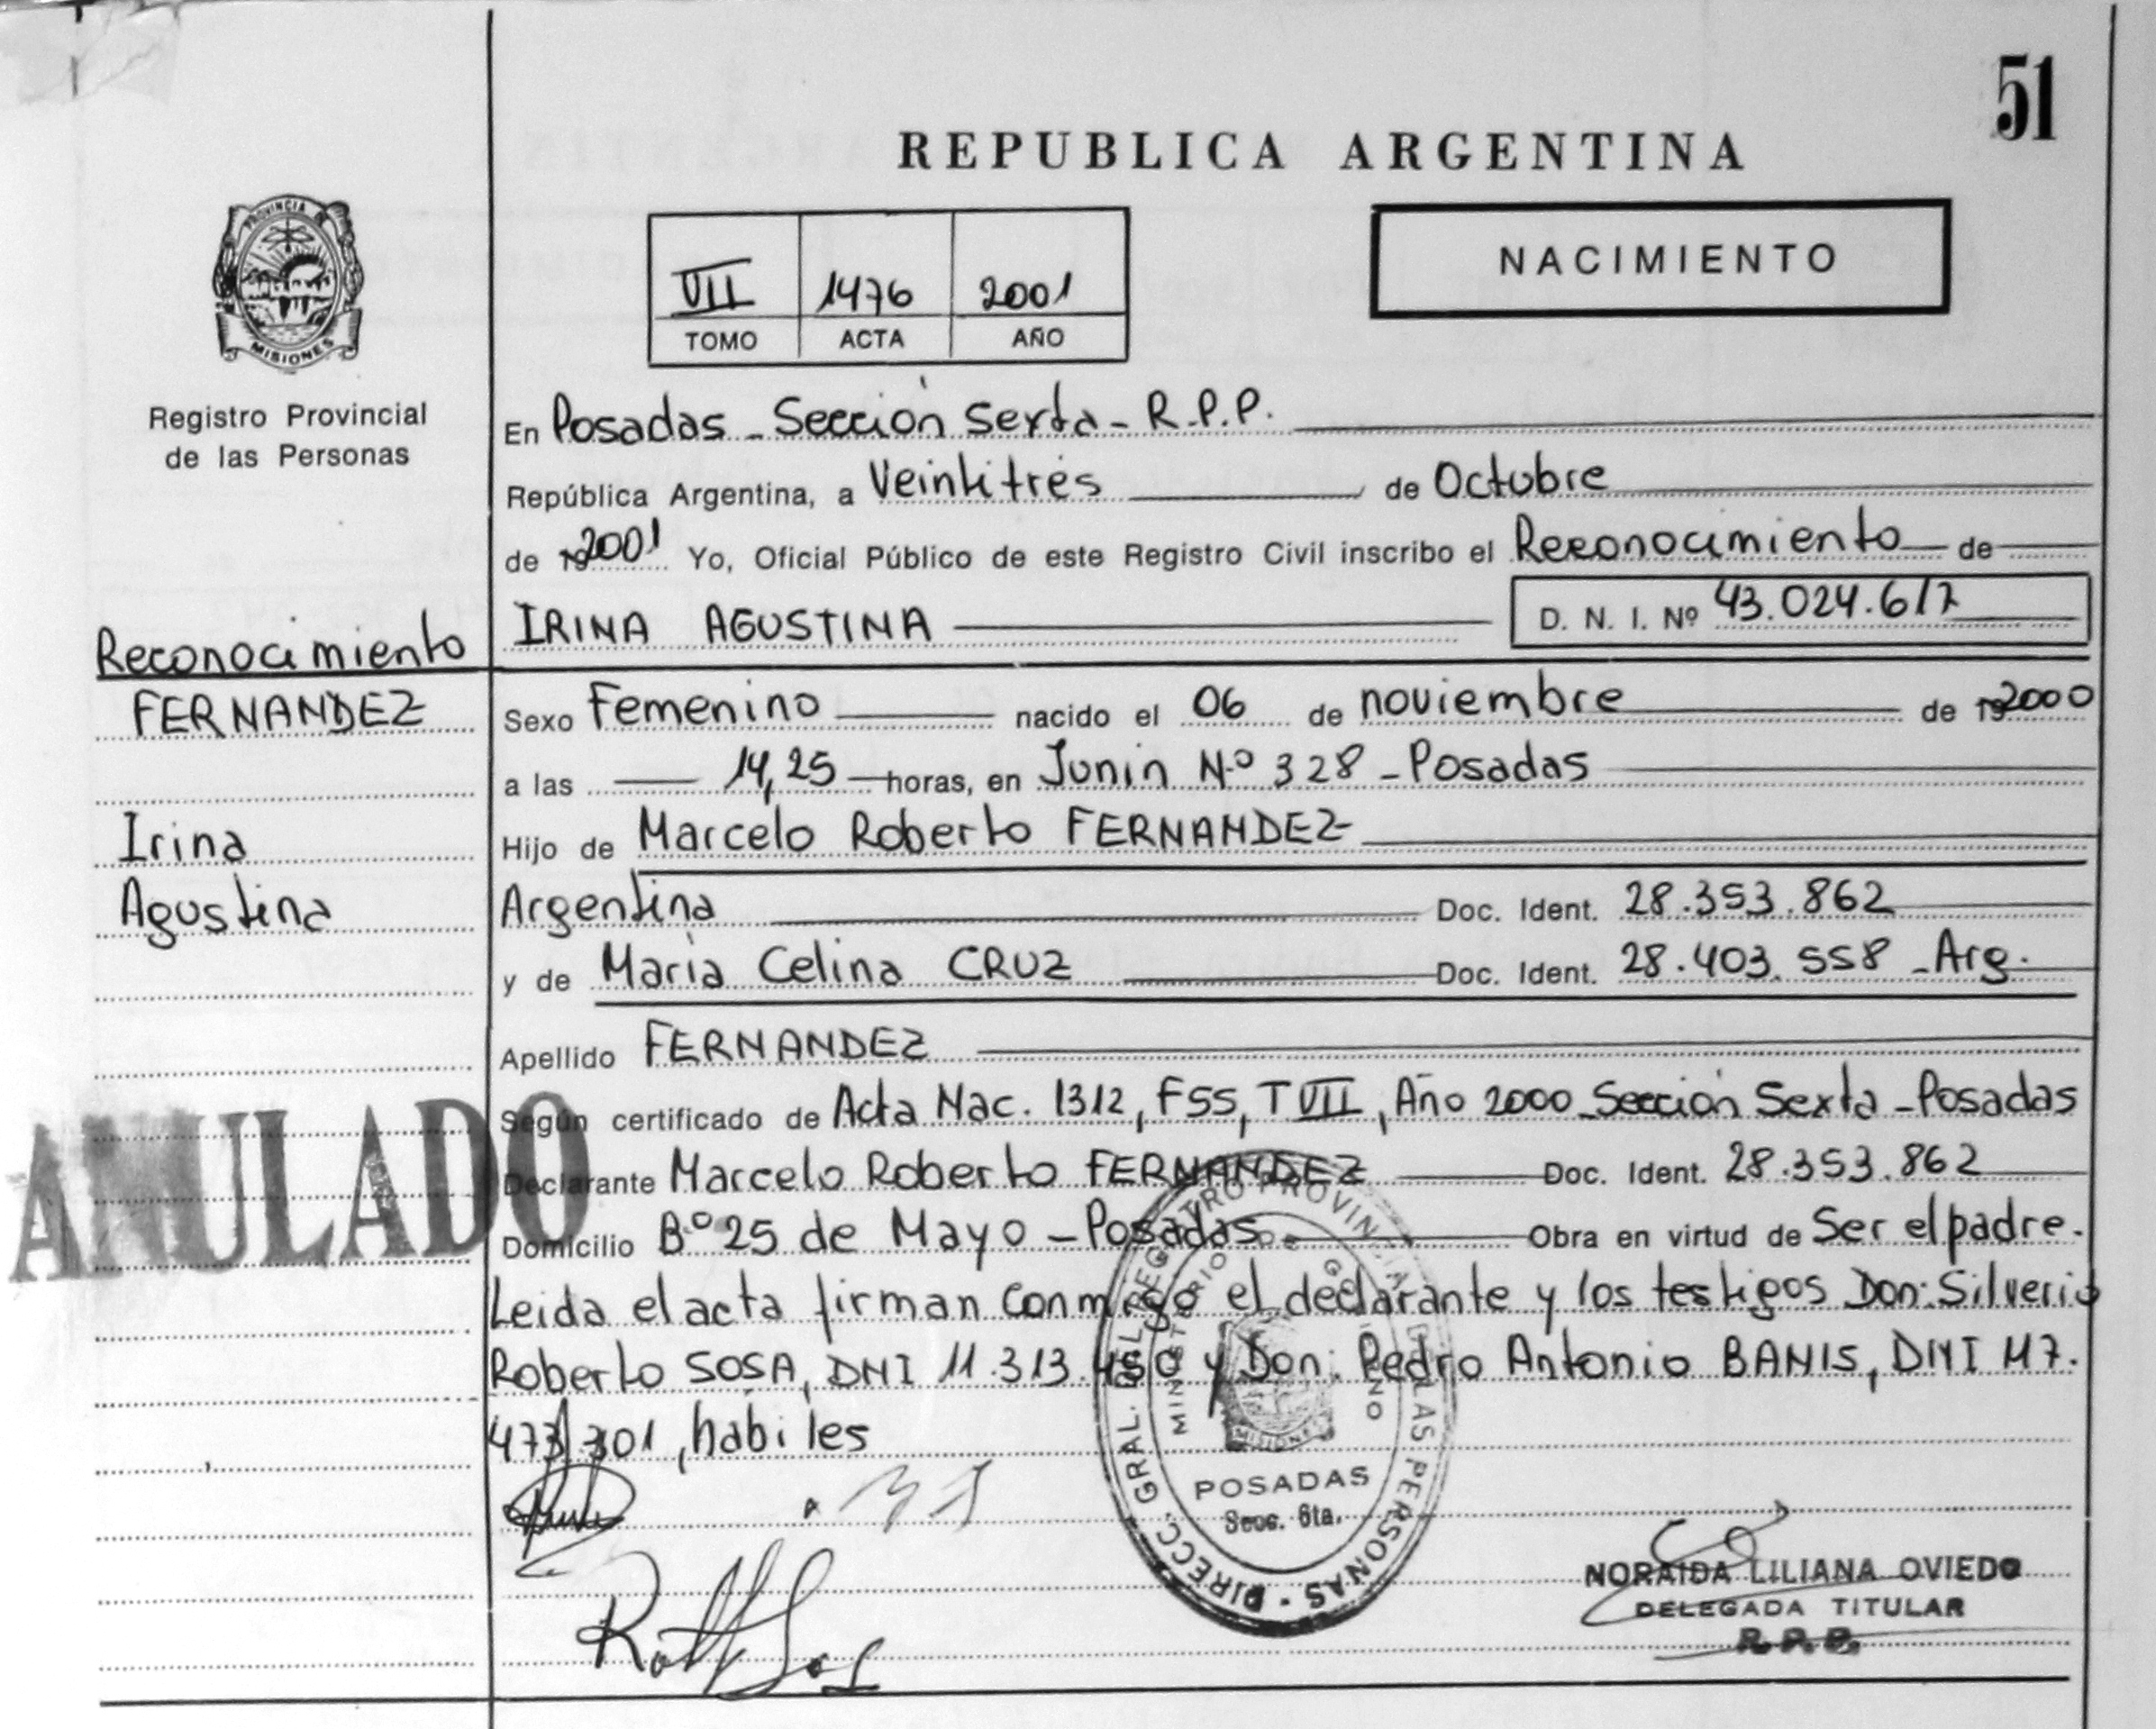 51
REPUBLICA ARGENTINA
NACIMIENTO
VII 1476 2001
TOMO ACTA AÑO
PROVINCIA DE
MISIONES
Registro Provincial
de las Personas
En Posadas - Sección Sexta - R.P.P.
República Argentina, a Veintitrés de Octubre
de 192001 Yo, Oficial Público de este Registro Civil inscribo el Reconocimiento de
IRINA AGUSTINA D. N. I. Nº 43.024.617
Reconocimiento
FERNANDEZ
Irina
Agustina
Sexo Femenino nacido el 06 de noviembre de 192000
a las 14,25 horas, en Junin Nº 328 - Posadas
Hijo de Marcelo Roberto FERNANDEZ
Argentina Doc. Ident. 28.353.862
y de María Celina CRUZ Doc. Ident. 28.403.558 - Arg.
Apellido FERNANDEZ
Según certificado de Acta Nac. 1312, F55, T VII, Año 2000 Sección Sexta - Posadas
ANULADO
Declarante Marcelo Roberto FERNANDEZ Doc. Ident. 28.353.862
Domicilio Bº 25 de Mayo - Posadas Obra en virtud de Ser el padre.
Leida el acta firman conmigo el declarante y los testigos Don: Silverio
Roberto SOSA, DNI 11.313.450 y Don: Pedro Antonio BANIS, DNI M7.
473.301, habiles
DIRECC. GRAL. DEL REGISTRO PROVINCIAL DE LAS PERSONAS
MINISTERIO DE GOBIERNO
MISIONES
POSADAS
Secc. 6ta.
NORAIDA LILIANA OVIEDO
DELEGADA TITULAR
R.P.P.